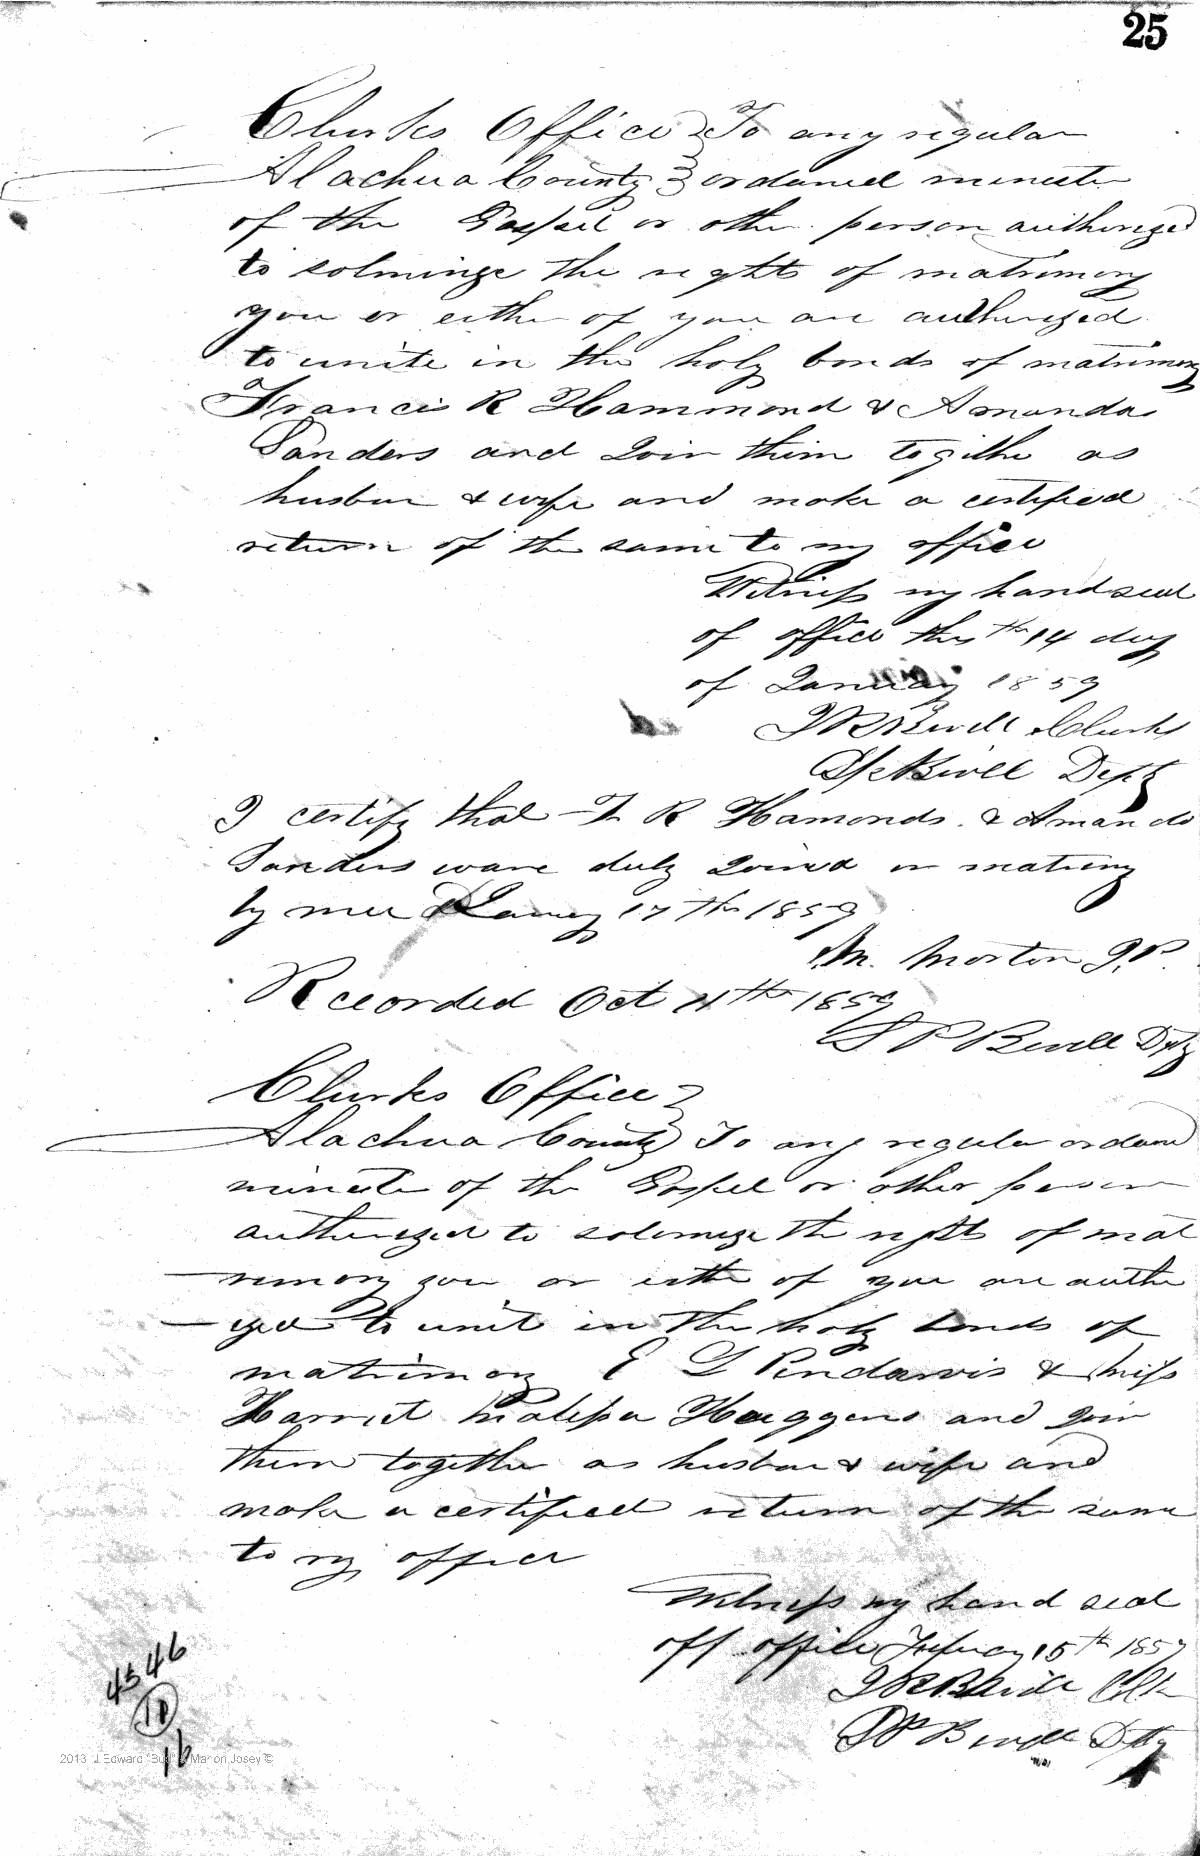 25
Clurks Office } To any regular
Alachua County } ordained minester
of the Gospel or other person authorized
to solminize the reghts of matrimony
you or either of you are authorized
to unite in the holy bonds of matrimony
Francis R Hammond & Amanda
Sanders and Join them togithe as
husban & wife and make a certified
return of the same to my office
Witness my hand seal
of office this th 14 day
of January 1859
J R Bevill Clurk
S P Bevill Depty
I certify that F R Hamonds & Amanda
Sanders ware duly Joined in
by mee 17th 1859
M. Morton J.P.
Recorded Oct 11th 1859
S P Bevill Dpty
Clurks Office }
Alachua County } To any regular ordaned
minester of the Gospel or other person
authorized to solemize the rights of mat
rimony you or eithe of you are autho
ized to unit in the holy bonds of
matrimony E L Pendarvis & Miss
Harriet Huggens and Join
them together as husban & wife and
make a certified return of the same
to my office
Witness my hand seal
off office 15th 1859
J R Bevill Clk
S P Bevill Dpty
45 46
10
16
2013 J Edward "Bud" & Marion Josey ©